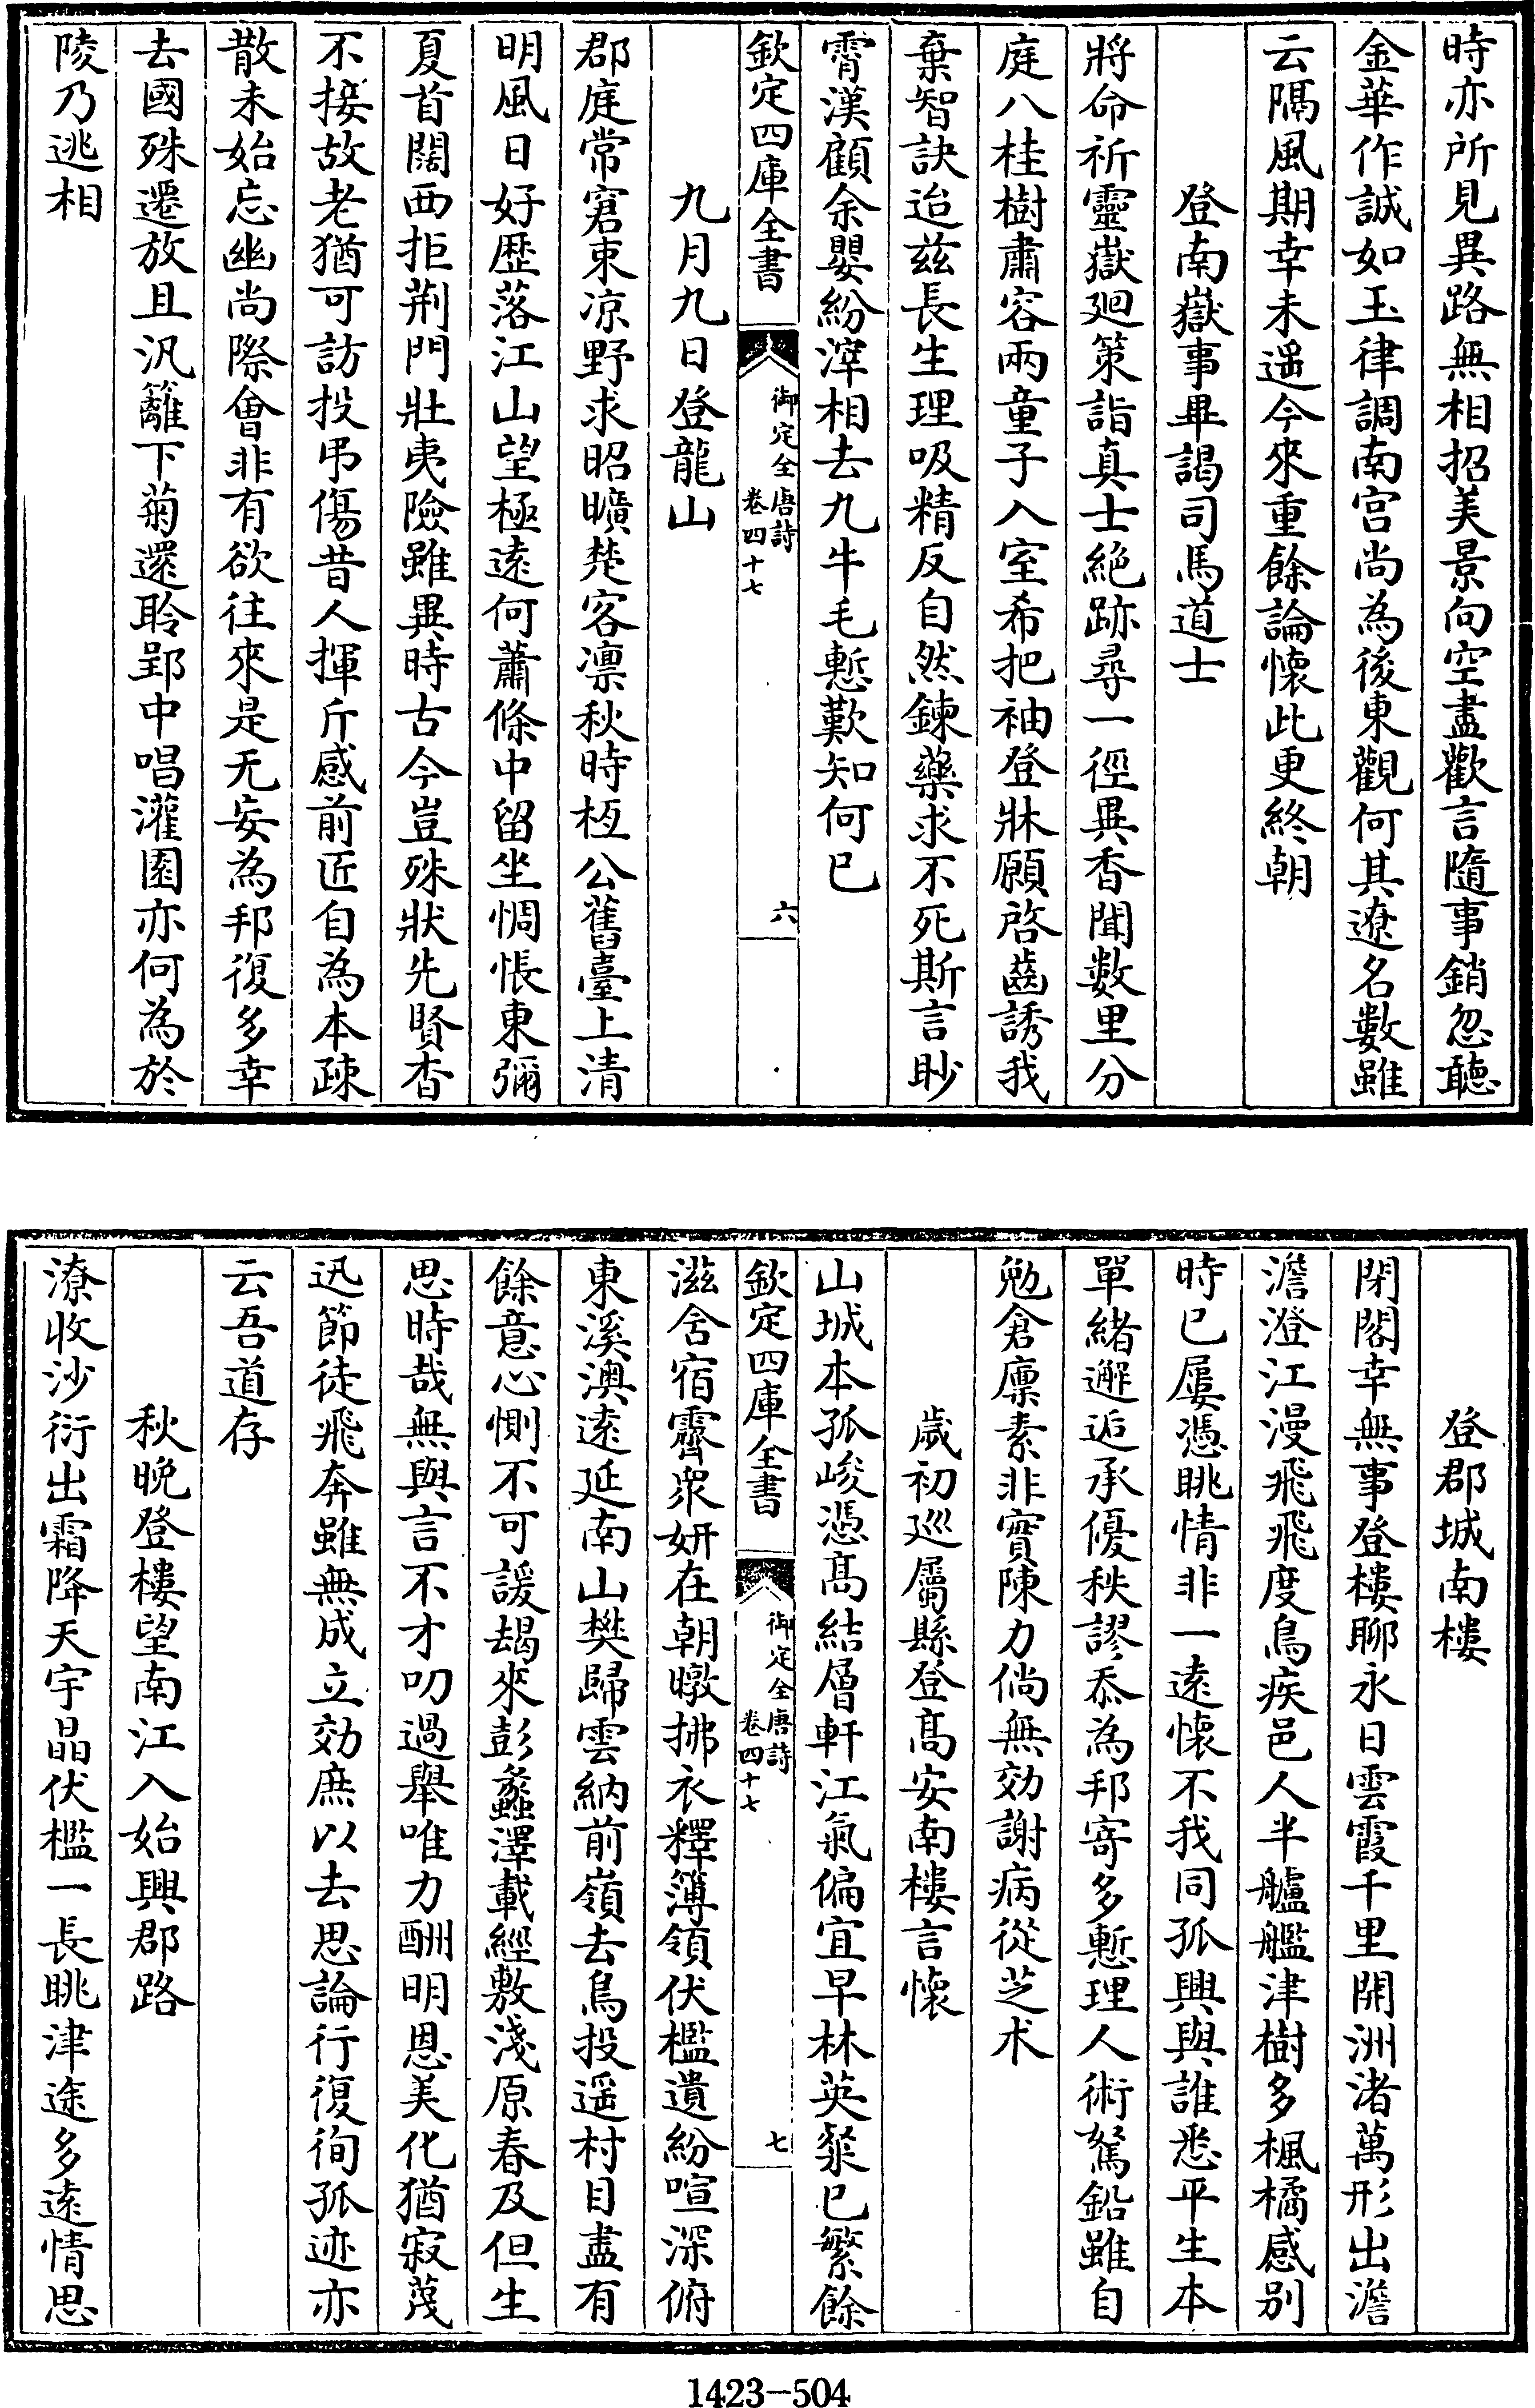 時亦所見異路無相招美景向空盡歡言隨事銷忽聽
金華作誠如玉律調南宫尚為後東觀何其遼名數雖
云隔風期幸未遥今來重餘論懷此更終朝
登南嶽事畢謁司馬道士
將命祈靈嶽廻策詣真士絶跡尋一徑異香聞數里分
庭八桂樹肅容兩童子入室希把袖登牀願啓齒誘我
棄智訣迨兹長生理吸精反自然鍊藥求不死斯言眇
霄漢顧余嬰紛滓相去九牛毛慙歎知何已
欽定四庫全書
御定全唐詩
卷四十七
六
九月九日登龍山
郡庭常窘束凉野求昭曠楚客凛秋時桓公舊臺上清
明風日好歷落江山望極逺何蕭條中留坐惆悵東彌
夏首闊西拒荆門壯夷險雖異時古今豈殊狀先賢杳
不接故老猶可訪投弔傷昔人揮斤感前匠自為本疎
散未始忘幽尚際㑹非有欲往來是无妄為邦復多幸
去國殊遷放且汎籬下菊還聆郢中唱灌園亦何為於
陵乃逃相
登郡城南樓
閉閤幸無事登樓聊永日雲霞千里開洲渚萬形出澹
澹澄江漫飛飛度鳥疾邑人半艫艦津樹多楓橘感别
時已屢憑眺情非一逺懷不我同孤興與誰悉平生本
單緒邂逅承優秩謬忝為邦寄多慙理人術駑鉛雖自
勉倉廪素非實陳力倘無効謝病從芝术
歲初巡屬縣登髙安南樓言懷
山城本孤峻憑髙結層軒江氣偏宜早林英粲已繁餘
欽定四庫全書
御定全唐詩
卷四十七
七
滋含宿霽衆妍在朝暾拂衣釋簿領伏檻遺紛喧深俯
東溪澳逺延南山樊歸雲納前嶺去鳥投遥村目盡有
餘意心惻不可諼朅來彭蠡澤載經敷淺原春及但生
思時哉無與言不才叨過舉唯力酬明恩美化猶寂蔑
迅節徒飛奔雖無成立効庶以去思論行復徇孤迹亦
云吾道存
秋晚登樓望南江入始興郡路
潦收沙衍出霜降天宇晶伏檻一長眺津途多逺情思
1423-504